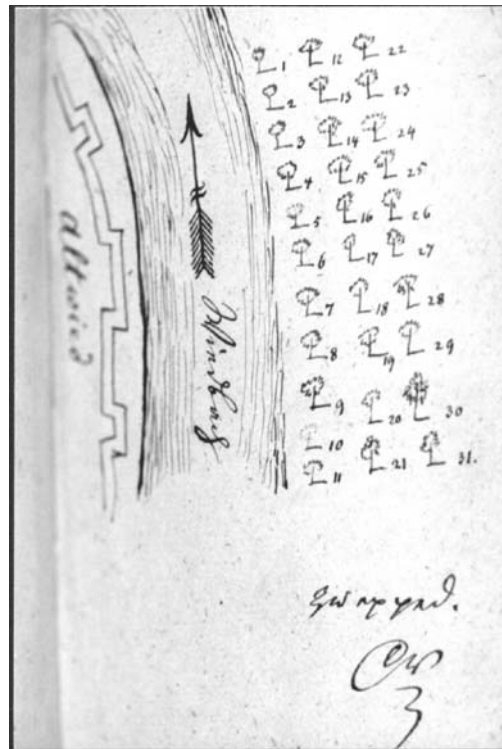 altwied
1 12 22
2 13 23
3 14 24
4 15 25
5 16 26
6 17 27
7 18 28
8 19 29
9 20 30
10
11 21 31.